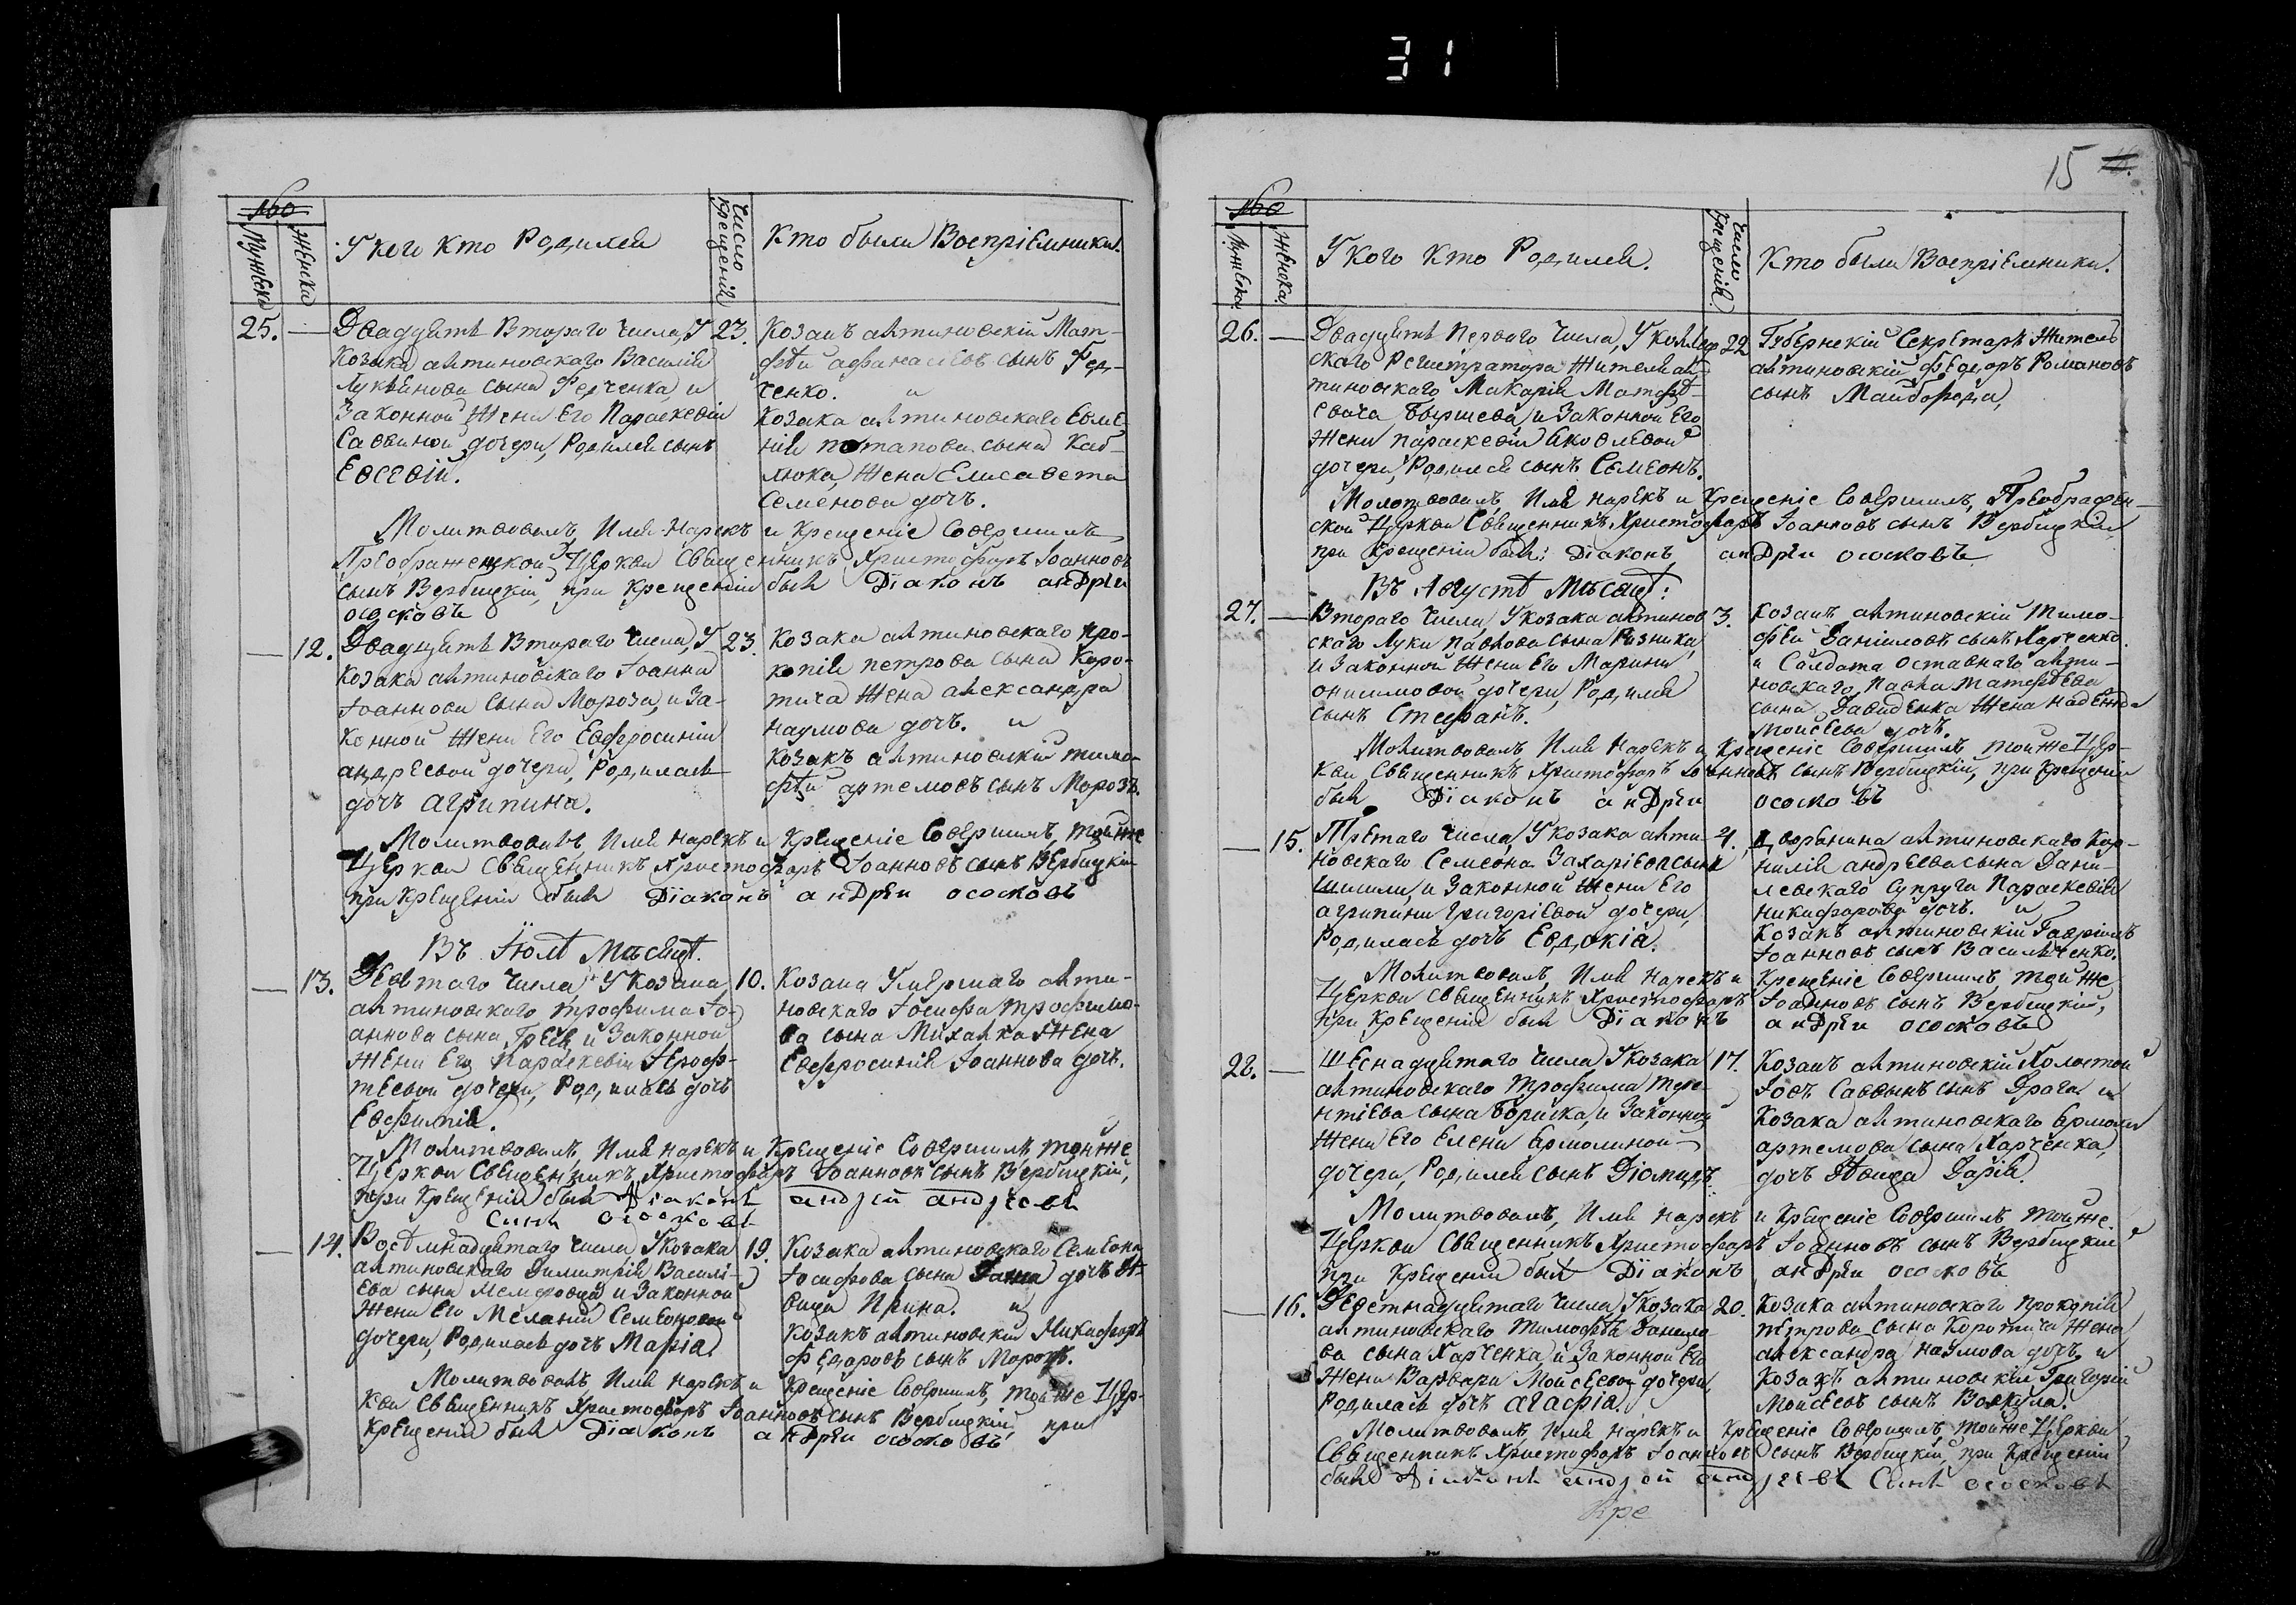 31
№
Мужеска
Женска
У кого Кто Родился
Число Крещенія
Кто были Воспріемники.
25.
Двадцять Втораго Числа, У
Козака алтиновскаго Василія
Лукьянова сына Федченка, и
Законной Жены Его Параскевіи
Саввиной дочери, Родился сынъ
Евсевій.
23.
Козакъ алтиновскій Мат-
фѣй афанасіевъ сынъ Фед-
ченко. и
Козака алтиновскаго Евме-
нія потапова сына Каб-
люка, Жена Елисавета
Семенова дочъ.
Молитвовалъ, Имя Нарекъ и Крещеніе Совершилъ,
Преображенской Церкви Священникъ Христофоръ Іоанновъ
сынъ Вербицкій, при Крещеніи былъ Діаконъ анДрѣи
ососковъ
12.
Двадцять Втораго Числа, У
Козака алтиновскаго Іоанна
Іоаннова сына Мороза, и За-
конной Жены Его Евфросиніи
андреевой дочери, Родилась
дочъ агрипина.
23.
Козака алтиновскаго про-
копія петрова сына Коро-
тича Жена александра
наумова дочъ. и
Козакъ алтиновскій тимо-
фѣй артемовъ сынъ Морозъ.
Молитвовалъ, Имя нарекъ и Крещеніе Совершилъ, тойже
Церкви Священникъ Христофоръ Іоанновъ сынъ Вербицкій
при Крещеніи былъ Діаконъ анДрѣи ососковъ
Въ Іюлѣ Мѣсяцѣ.
13.
Девятаго Числа, У Козака
алтиновскаго трофима Іо-
аннова сына и Законной
Жены Его Параскевіи
дочери, Родилась дочъ
Евфимія.
10.
Козака Умершаго алти-
новскаго Іосифа трофимо-
ва сына Михалка Жена
Евфросинія Іоаннова дочъ.
Молитвовалъ, Имя нарекъ и Крещеніе Совершилъ, тойже
Церкви Священникъ, Христофоръ Іоанновъ сынъ Вербицкій,
при Крещеніи былъ Діаконъ андрей андреевъ
Синъ ососковъ
14.
Восѣмнадцятаго Числа У Козака
алтиновскаго Димитрія Василі-
ева сына и Законной
Жены Его Меланіи Семеоновой
дочери, Родилась дочъ Марія.
19.
Козака алтиновскаго Семеона
Іосифова сына дочъ дѣ-
вица Ирина. и
Козакъ алтиновскій Никифоръ
федаровъ сынъ Морозъ.
Молитвовалъ, Имя нарекъ и Крещеніе Совершилъ, тойже Цер-
кви Священникъ Христофоръ Іоанновъ сынъ Вербицкій, при
Крещеніи былъ Діаконъ анДрѣи ососковъ
15
№
Мужеска
Женска
У Кого Кто Родился.
Число Крещенія
Кто были Воспріемники.
26.
Двадцять Перваго Числа, У Коллеж-
скаго Регистратора Жителя ал-
тиновскаго Макарія Матфѣ-
евича и Законной Его
Жены параскевіи Яковлевой
дочери, Родился сынъ Семеонъ.
22
Губернскій Секретаръ Житель
алтиновскій, федоръ Романовъ
сынъ Майборода,
Молитвовалъ, Имя нарекъ и Крещеніе Совершилъ, Преображен-
ской Церкви Священникъ Христофоръ Іоанновъ сынъ Вербицкій,
при Крещеніи былъ: Діаконъ анДрѣи ососковъ
Въ Августѣ Мѣсяцѣ:
27.
Втораго Числа У козака алтинов
скаго Луки павлова сына Рѣзника,
и Законной Жены Его Марины
онисимовой дочери, Родился
сынъ Стефанъ.
3.
Козакъ алтиновскій Тимо-
фей Даніиловъ сынъ Харченко.
и Салдата оставнаго алти-
новскаго, павла матфѣева
сына, Давиденка Жена надежда
Моисеева дочъ.
Молитвовалъ Имя Нарекъ и Крещеніе Совершилъ тойже Цер-
кви Священникъ Христофоръ Іоанновъ сынъ Вербицкій, при Крещеніи
былъ Діаконъ анДрѣи ососковъ
15.
Третаго Числа, У козака алти-
новскаго Семеона Захаріева сына
Шишли, и Законной Жены Его
агрипины Григоріевой дочери,
Родилась дочъ Евдокія.
4.
Дворенина алтиновскаго Кор-
нилія андреева сына Дани-
левскаго Супруга Параскевія
Никифорова дочъ. и
Козакъ алтиновскій Гавріилъ
Іоанновъ сынъ Василченко.
Молитвовалъ, Имя Нарекъ и Крещеніе Совершилъ, тойже
Церкви Священникъ Христофоръ Іоанновъ сынъ Вербицкій,
при Крещеніи былъ Діаконъ анДрѣи ососковъ
28.
Шеснадцятаго Числа У козака
алтиновскаго трофима тере-
нтіева сына Бориска, и Законной
Жены Его Елены Ермолиной
дочери, Родился сынъ Діомидъ.
17.
Козакъ алтиновскій Холостой
Іовъ Саввынъ сынъ Драга и
Козака алтиновскаго Ермолы
артемова сына Харченка,
дочъ дѣвица Дарія.
Молитвовалъ, Имя Нарекъ и Крещеніе Совершилъ тойже
Церкви Священникъ Христофоръ Іоанновъ сынъ Вербицкій
при Крещеніи былъ Діаконъ анДрѣи ососковъ
16.
Девѣтнадцятаго Числа, У козака
алтиновскаго Тимофѣя Данило-
ва сына Харченка, и Законной Его
Жены Варвары Мойсеевой дочери,
Родилась дочъ агафія.
20.
Козака алтиновскаго прокопія
петрова сына Коротича Жена,
александра наумова дочъ, и
Козакъ алтиновскій Григорій
Моисеевъ сынъ Вакула.
Молитвовалъ, Имя Нарекъ и Крещеніе Совершилъ, тойже Церкви
Священникъ Христофоръ Іоанновъ сынъ Вербицкій, при Крещеніи
былъ Діаконъ андрей андреевъ Синъ ососковъ
Кре